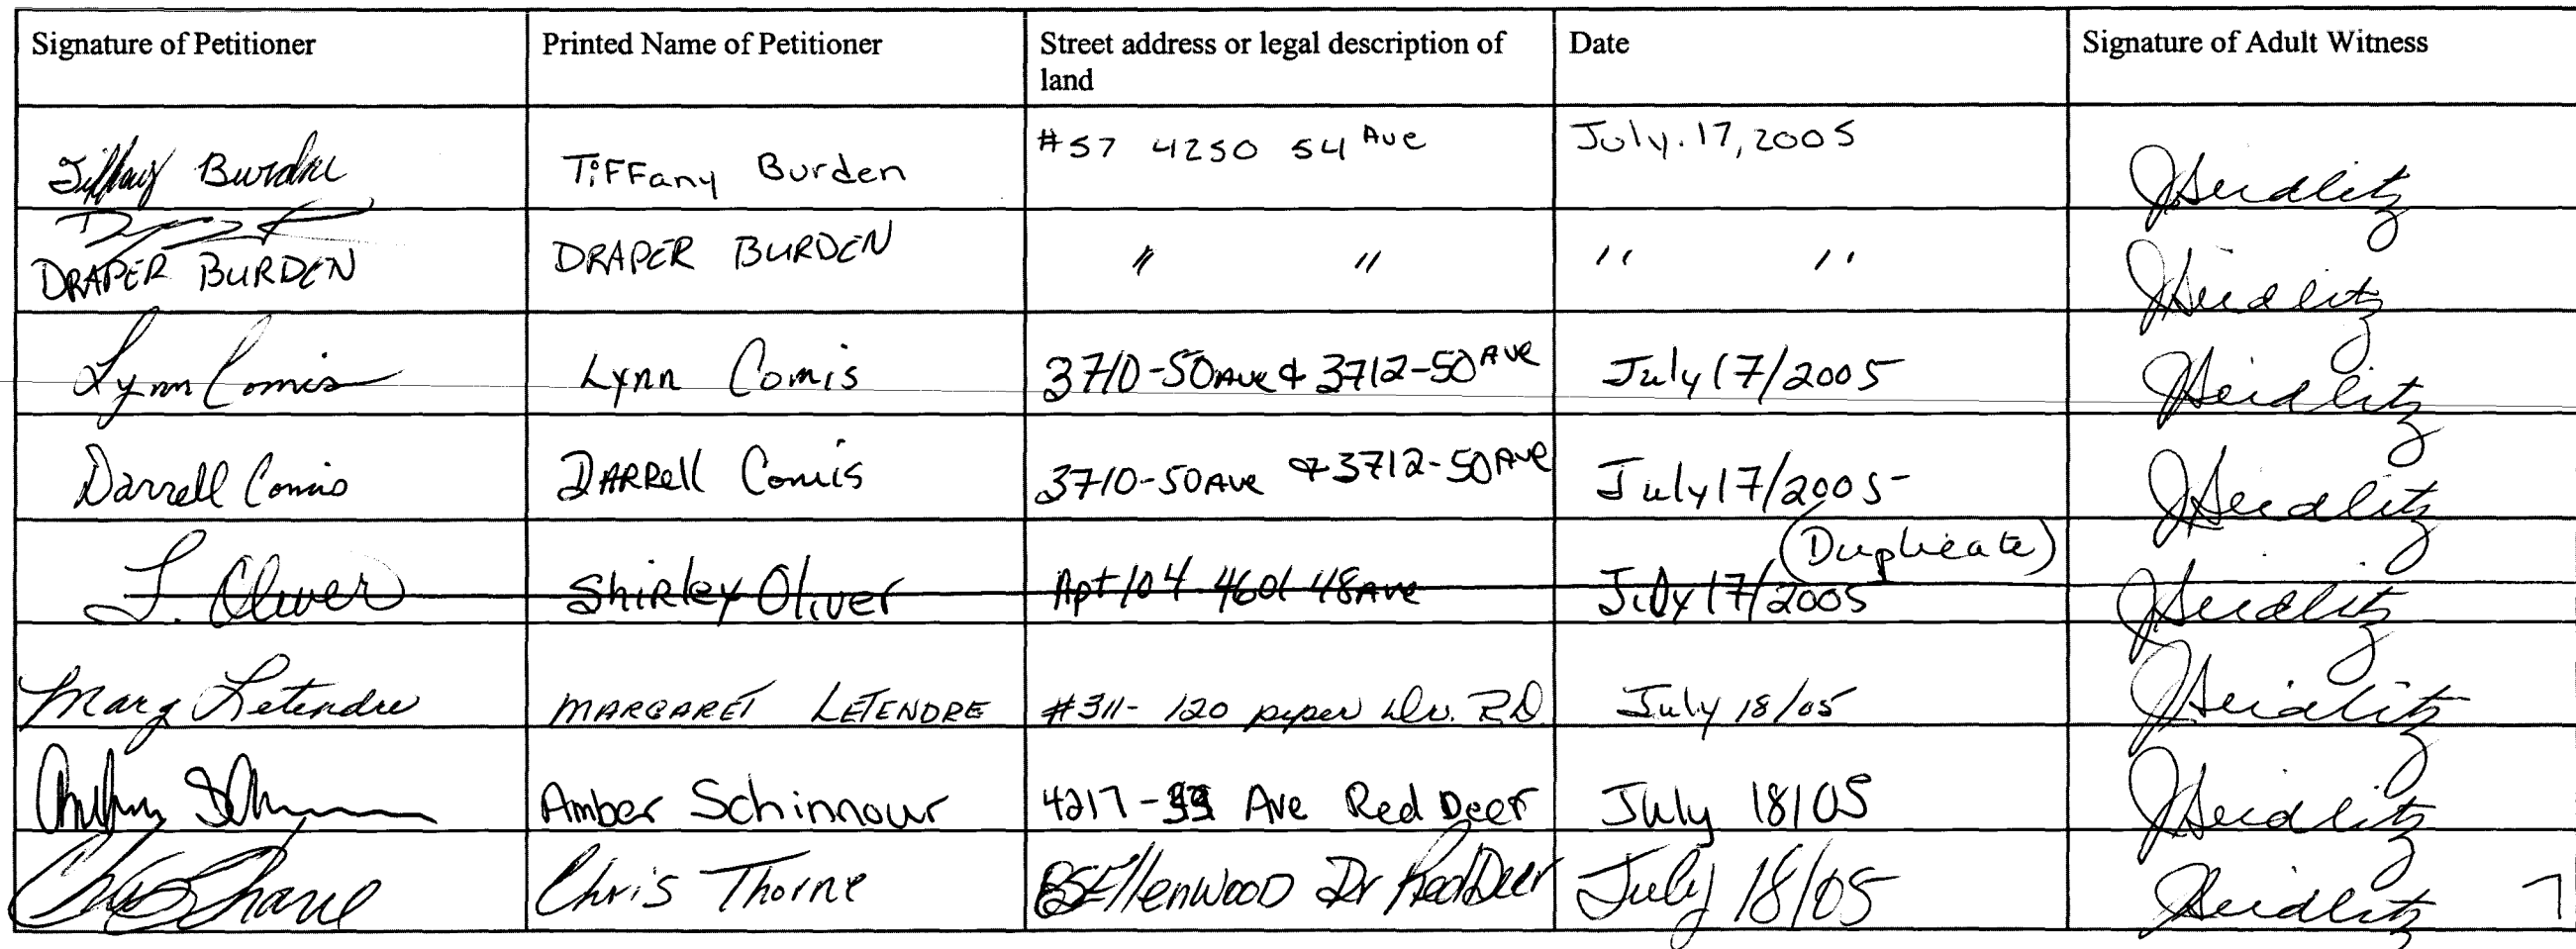 Signature of Petitioner Printed Name of Petitioner Street address or legal description of land Date Signature of Adult Witness
Tiffany Burden TiFFany Burden #57 4250 54 Ave July.17,2005 JHeidlitz
DRAPER BURDEN DRAPER BURDEN " " " " JHeidlitz
Lynn Comis Lynn Comis 3710-50Ave & 3712-50Ave July 17/2005 JHeidlitz
Darrell Comis DARRell Comis 3710-50Ave & 3712-50Ave July 17/2005 JHeidlitz
(Duplicate)
S. Oliver Shirley Oliver Apt 104 4601 48Ave July 17/2005 JHeidlitz
Marg Letendre MARGARET LETENDRE #311- 120 piper Dr. RD. July 18/05 JHeidlitz
Amber Schinnour 4217- Ave Red Deer July 18/05 JHeidlitz
Chris Thorne Chris Thorne Ellenwood Dr Red Deer July 18/05 JHeidlitz 7